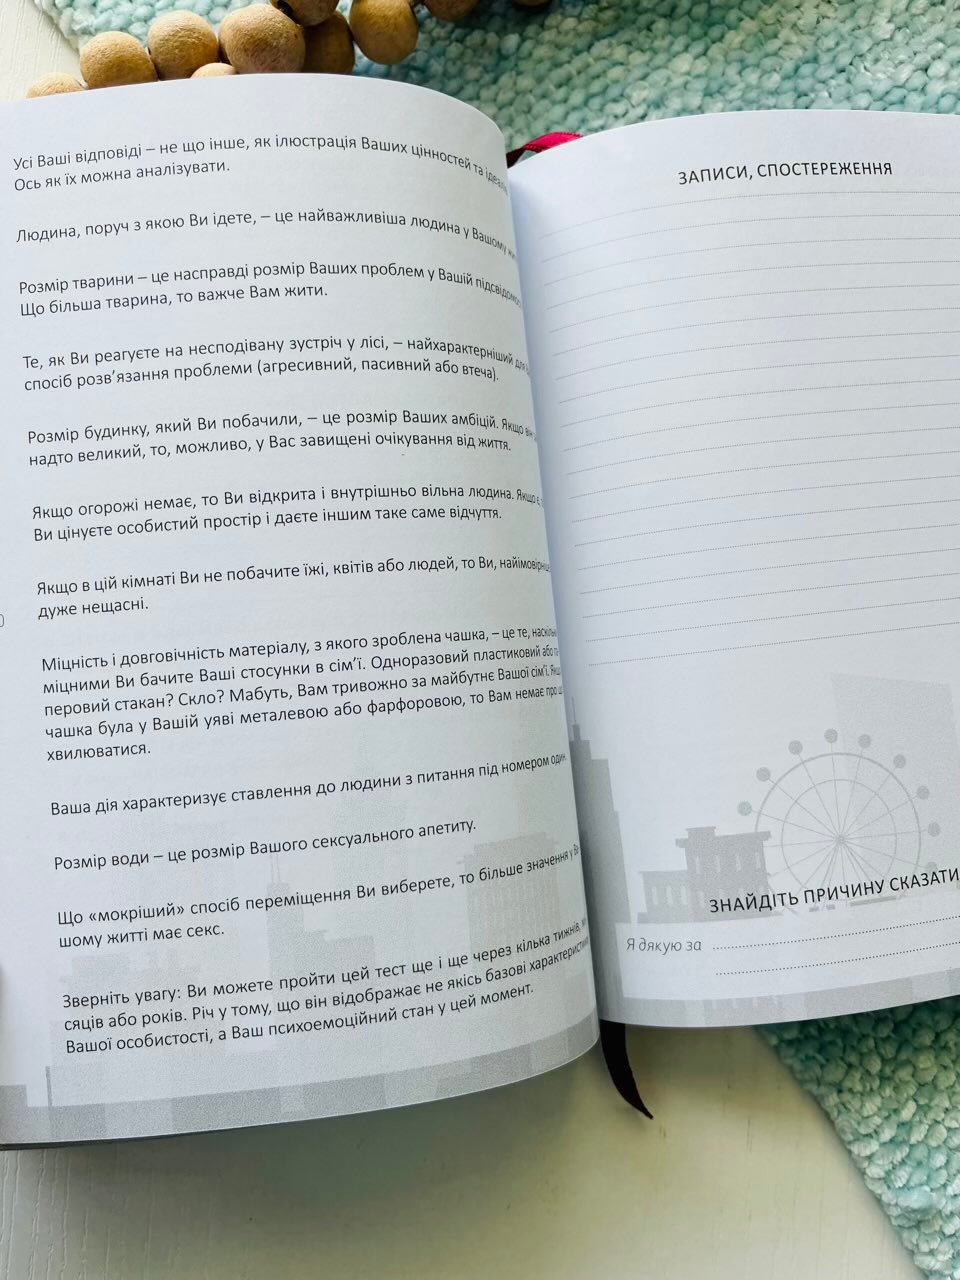 Усі Ваші відповіді – не що інше, як ілюстрація Ваших цінностей та
Ось як їх можна аналізувати.
Людина, поруч з якою Ви ідете, – це найважливіша людина у Вашому
Розмір тварини – це насправді розмір Ваших проблем у Вашій
Що більша тварина, то важче Вам жити.
Те, як Ви реагуєте на несподівану зустріч у лісі, – найхарактерніший для
спосіб розв’язання проблеми (агресивний, пасивний або втеча).
Розмір будинку, який Ви побачили, – це розмір Ваших амбіцій. Якщо він
надто великий, то, можливо, у Вас завищені очікування від життя.
Якщо огорожі немає, то Ви відкрита і внутрішньо вільна людина. Якщо є
Ви цінуєте особистий простір і даєте іншим таке саме відчуття.
Якщо в цій кімнаті Ви не побачите їжі, квітів або людей, то Ви, найімовірніше
дуже нещасні.
Міцність і довговічність матеріалу, з якого зроблена чашка, – це те,
міцними Ви бачите Ваші стосунки в сім’ї. Одноразовий пластиковий або
перовий стакан? Скло? Мабуть, Вам тривожно за майбутнє Вашої сім’ї.
чашка була у Вашій уяві металевою або фарфоровою, то Вам немає про
хвилюватися.
Ваша дія характеризує ставлення до людини з питання під номером один.
Розмір води – це розмір Вашого сексуального апетиту.
Що «мокріший» спосіб переміщення Ви виберете, то більше значення у Ва-
шому житті має секс.
Зверніть увагу: Ви можете пройти цей тест ще і ще через кілька тижнів,
сяців або років. Річ у тому, що він відображає не якісь базові характеристики
Вашої особистості, а Ваш психоемоційний стан у цей момент.
ЗАПИСИ, СПОСТЕРЕЖЕННЯ
ЗНАЙДІТЬ ПРИЧИНУ СКАЗАТИ
Я дякую за